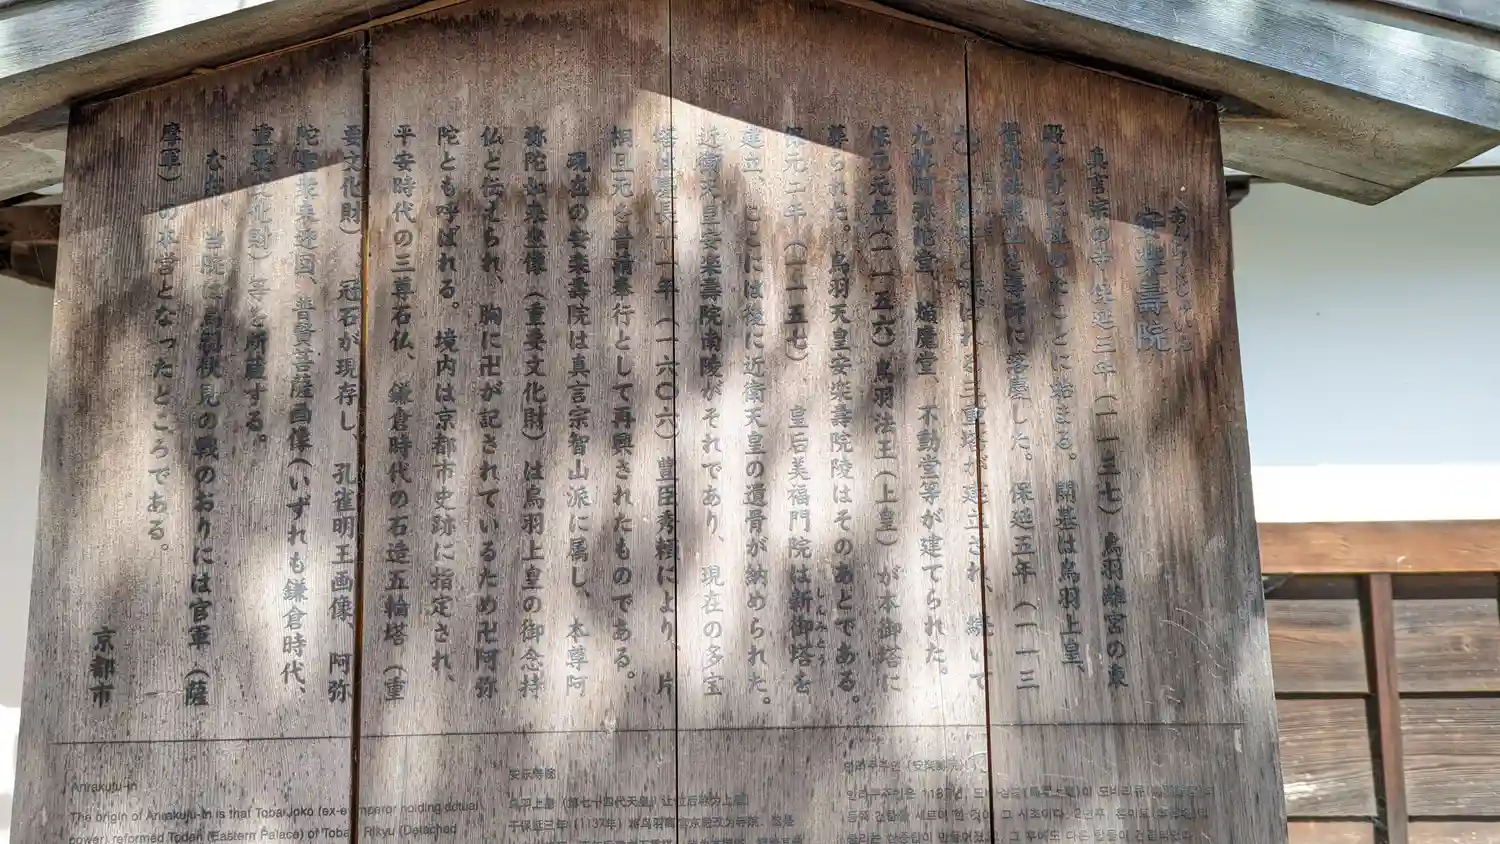 あんらくじゅいん
安楽壽院
真言宗の寺。保延三年(一一三七)鳥羽離宮の東
殿を寺に改めたことに始まる。開基は鳥羽上皇、
に落慶した。保延五年(一一三
九)本御塔と呼ばれる三重塔が建立され、続いて
九躰阿弥陀堂、焔魔堂、不動堂等が建てられた。
保元元年(一一五六)鳥羽法王(上皇)が本御塔に
葬られた。鳥羽天皇安楽壽院陵はそのあとである。
保元二年(一一五七)皇后美福門院は新御塔を
しんみとう
建立、ここには後に近衛天皇の遺骨が納められた。
近衛天皇安楽壽院南陵がそれであり、現在の多宝
塔は慶長十一年(一六〇六)豊臣秀頼により、片
桐且元を普請奉行として再興されたものである。
現在の安楽壽院は真言宗智山派に属し、本尊阿
弥陀如来坐像(重要文化財)は鳥羽上皇の御念持
仏と伝えられ、胸に卍が記されているため卍阿弥
陀とも呼ばれる。境内は京都市史跡に指定され、
平安時代の三尊石仏、鎌倉時代の石造五輪塔(重
要文化財)、冠石が現存し、孔雀明王画像、阿弥
陀聖衆来迎図、普賢菩薩画像(いずれも鎌倉時代、
重要文化財)等を所蔵する。
なお、当院は鳥羽伏見の戦のおりには官軍(薩
摩軍)の本営となったところである。
京都市
Anrakuju-in
The origin of Anrakuju-in is that Toba Joko (ex-emperor holding actual
power) reformed Todan (Eastern Palace) of Toba Rikyu (Detached
安乐寿院
鸟羽上皇(第七十四代天皇)让位后称为上皇
于保延三年(1137年)将鸟羽离宫东殿改为寺院
안라쿠주인(安楽壽院)